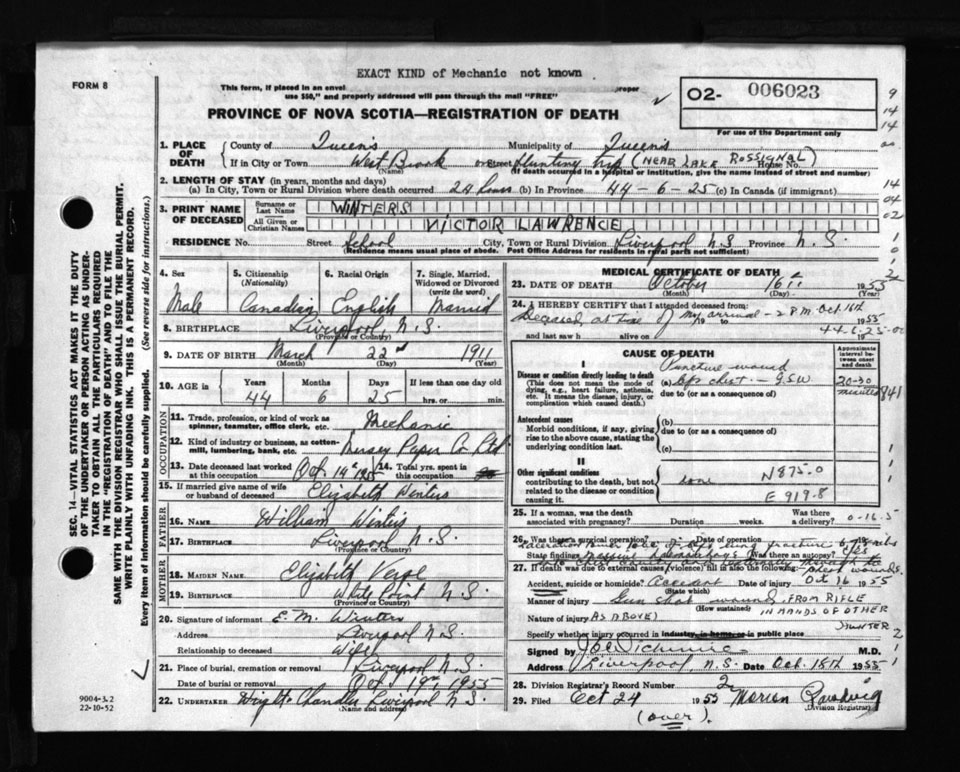 EXACT KIND of Mechanic not known
FORM 8
This form, if placed in an envel proper
use $50," and properly addressed will pass through the mail "FREE"
O2- 006023
For use of the Department only
PROVINCE OF NOVA SCOTIA—REGISTRATION OF DEATH
1. PLACE OF DEATH
County of Queens Municipality of Queens
If in City or Town West Brook or Street Hunting trip (NEAR LAKE ROSSIGNAL) House No.
(Name) (If death occurred in a hospital or institution, give the name instead of street and number)
2. LENGTH OF STAY (in years, months and days)
(a) In City, Town or Rural Division where death occurred 24 hours (b) In Province 44-6-25 (c) In Canada (if immigrant)
3. PRINT NAME OF DECEASED
Surname or Last Name WINTERS
All Given or Christian Names VICTOR LAWRENCE
RESIDENCE No. Street School City, Town or Rural Division Liverpool N.S. Province N.S.
(Residence means usual place of abode. Post Office Address for residents in rural parts not sufficient)
4. Sex Male
5. Citizenship (Nationality) Canadian
6. Racial Origin English
7. Single, Married, Widowed or Divorced (write the word) Married
8. BIRTHPLACE Liverpool, N.S.
(Province or Country)
9. DATE OF BIRTH March 22nd 1911
(Month) (Day) (Year)
10. AGE in Years Months Days If less than one day old
44 6 25 hrs. or min.
OCCUPATION
11. Trade, profession, or kind of work as spinner, teamster, office clerk, etc. Mechanic
12. Kind of industry or business, as cotton-mill, lumbering, bank, etc. Mersey Paper Co. Ltd
13. Date deceased last worked at this occupation Oct. 14th 1955 14. Total yrs. spent in this occupation
15. If married give name of wife or husband of deceased Elizabeth Winters
FATHER
16. NAME William Winters
17. BIRTHPLACE Liverpool N.S.
(Province or Country)
MOTHER
18. MAIDEN NAME Elizabeth
19. BIRTHPLACE White Point N.S.
(Province or Country)
20. Signature of informant E.M. Winters
Address Liverpool N.S.
Relationship to deceased Wife
21. Place of burial, cremation or removal Liverpool N.S.
Date of burial or removal Oct. 19th, 1955
22. UNDERTAKER Wright Chandler Liverpool N.S.
(Name and address)
MEDICAL CERTIFICATE OF DEATH
23. DATE OF DEATH October 16th 1955
(Month) (Day) (Year)
24. I HEREBY CERTIFY that I attended deceased from:
Deceased at time of my arrival - 2 P.M. Oct. 16th
44-6-25-00
and last saw h alive on 19
CAUSE OF DEATH
Approximate interval between onset and death
I
Disease or condition directly leading to death
(This does not mean the mode of dying, e.g., heart failure, asthenia, etc. It means the disease, injury, or complication which caused death.)
Puncture wound
(a) left chest - G.S.W. 20-30 minutes
due to (or as a consequence of)
841
Antecedent causes
Morbid conditions, if any, giving rise to the above cause, stating the underlying condition last.
(b)
due to (or as a consequence of)
(c)
II
Other significant conditions
contributing to the death, but not related to the disease or condition causing it.
none
N875.0
E 919.8
25. If a woman, was the death associated with pregnancy? Duration weeks. Was there a delivery? 0-16-5
26. Was there a surgical operation? Date of operation
State findings Massive Was there an autopsy? yes
27. If death was due to external causes (violence) fill in also the following:
Accident, suicide or homicide? Accident Date of injury Oct 16 1955
(State which)
Manner of injury Gun shot wound FROM RIFLE
(How sustained) IN HANDS OF OTHER
HUNTER
Nature of injury AS ABOVE)
Specify whether injury occurred in industry, in home, or in public place
Signed by M.D.
Address Liverpool N.S. Date Oct. 18th 1955
28. Division Registrar's Record Number 2
29. Filed Oct 24 1955
(Division Registrar)
(over).
SEC. 14—VITAL STATISTICS ACT MAKES IT THE DUTY
OF THE UNDERTAKER OR PERSON ACTING AS UNDER-
TAKER TO OBTAIN ALL THE PARTICULARS REQUIRED
IN THE "REGISTRATION OF DEATH" AND TO FILE THE
SAME WITH THE DIVISION REGISTRAR WHO SHALL ISSUE THE BURIAL PERMIT.
WRITE PLAINLY WITH UNFADING INK. THIS IS A PERMANENT RECORD.
Every item of information should be carefully supplied. (See reverse side for instructions.)
9004-3.2
22-10-52
9
14
14
00
14
04
02
1
0
1
2